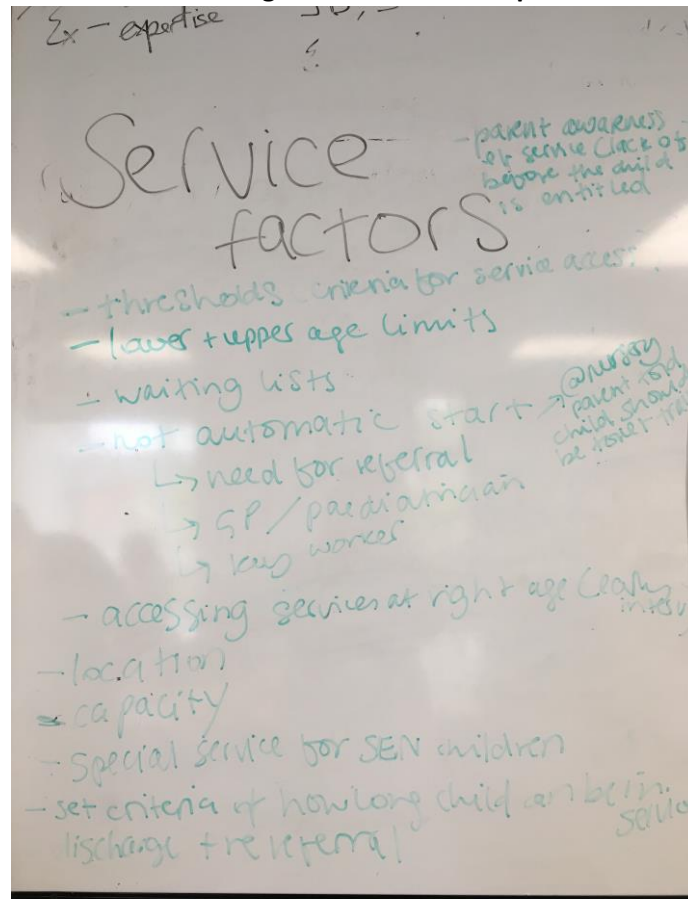 Ex - expertise
Service
factors
- parent awareness
of service (lack of
before the child
is entitled
- thresholds criteria for service access
- lower + upper age limits
- waiting lists
- not automatic start → @nursery
parent told
child should
be toilet
↳ need for referral
↳ GP / paediatrician
↳ key worker
- accessing services at right age (early
- location
- capacity
- special service for SEN children
- set criteria of how long child can be in
discharge + rereferral